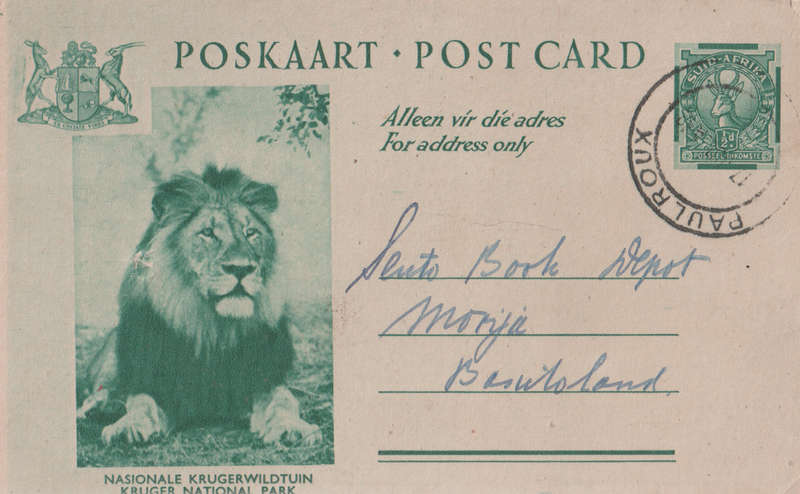 POSKAART · POST CARD
Alleen vir die adres
For address only
SUID-AFRIKA
½d
POSSEËL-INKOMSTE
PAUL ROUX
Sesuto Book Depot
Morija
Basutoland.
EX UNITATE VIRES
NASIONALE KRUGERWILDTUIN
KRUGER NATIONAL PARK